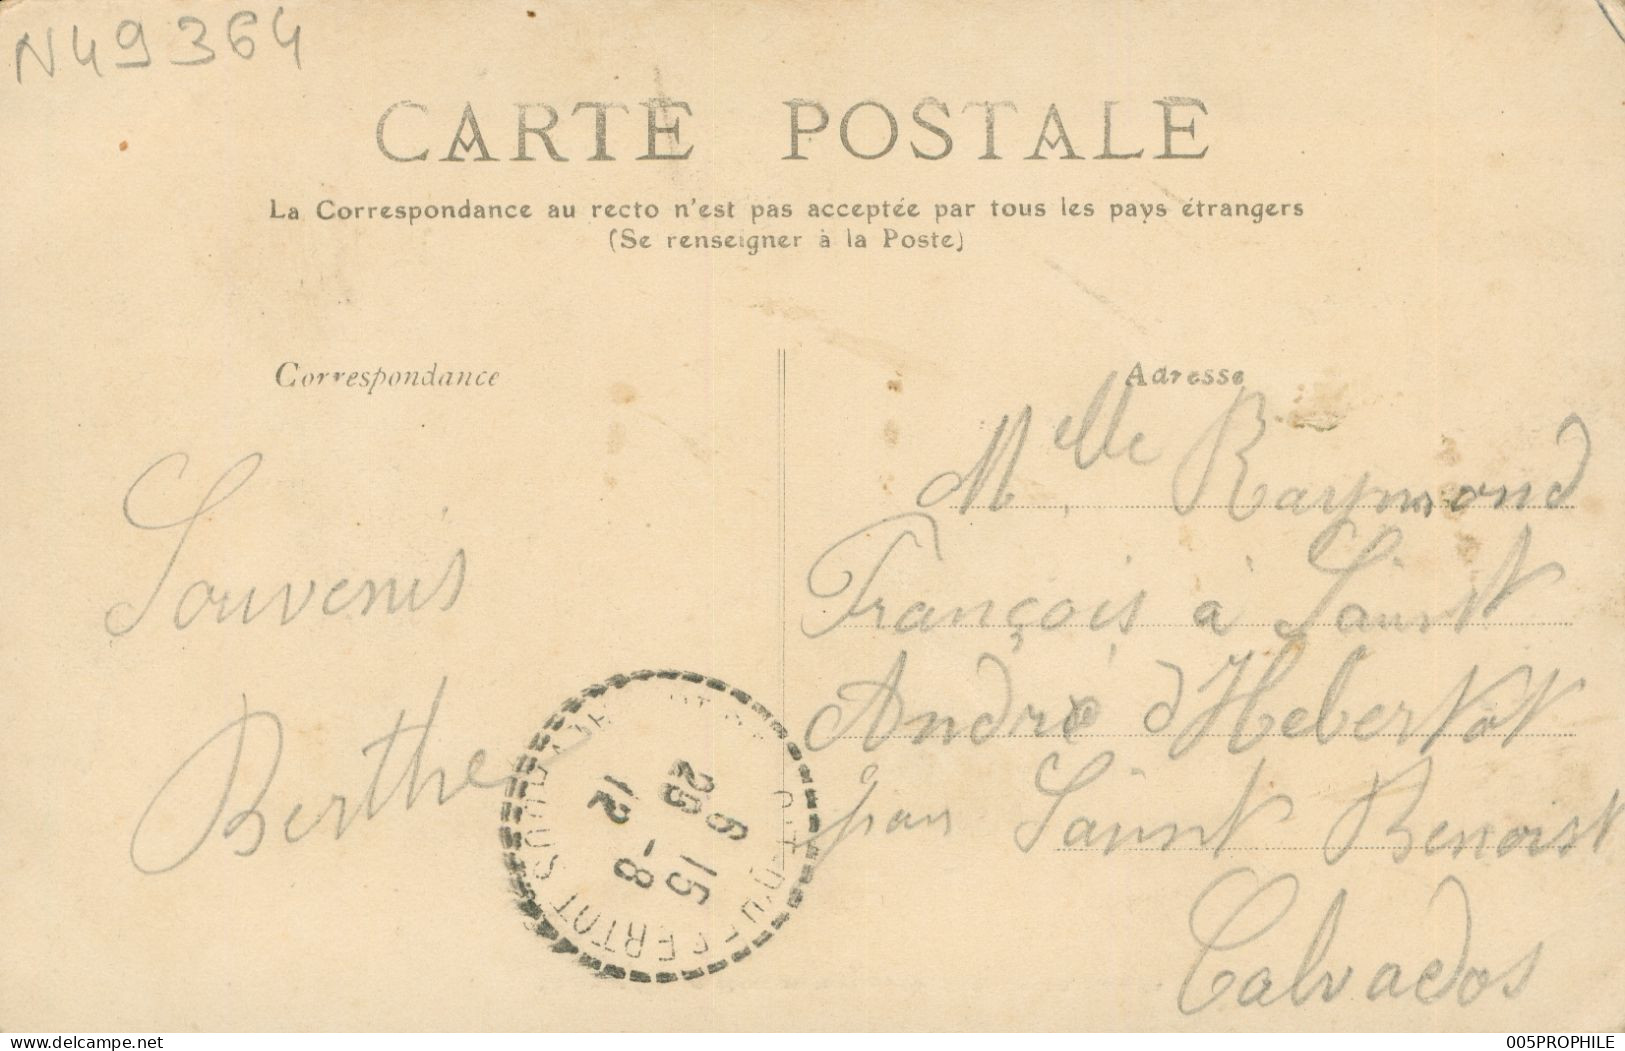 N49364
CARTE POSTALE
La Correspondance au recto n'est pas acceptée par tous les pays étrangers
(Se renseigner à la Poste)
Correspondance
Souvenis
Berthe
Adresse
Melle Raymond
François à Saint
André d'Hebertot
par Saint Benoist
Calvados
15 -8
12
delcampe.net
005PROPHILE